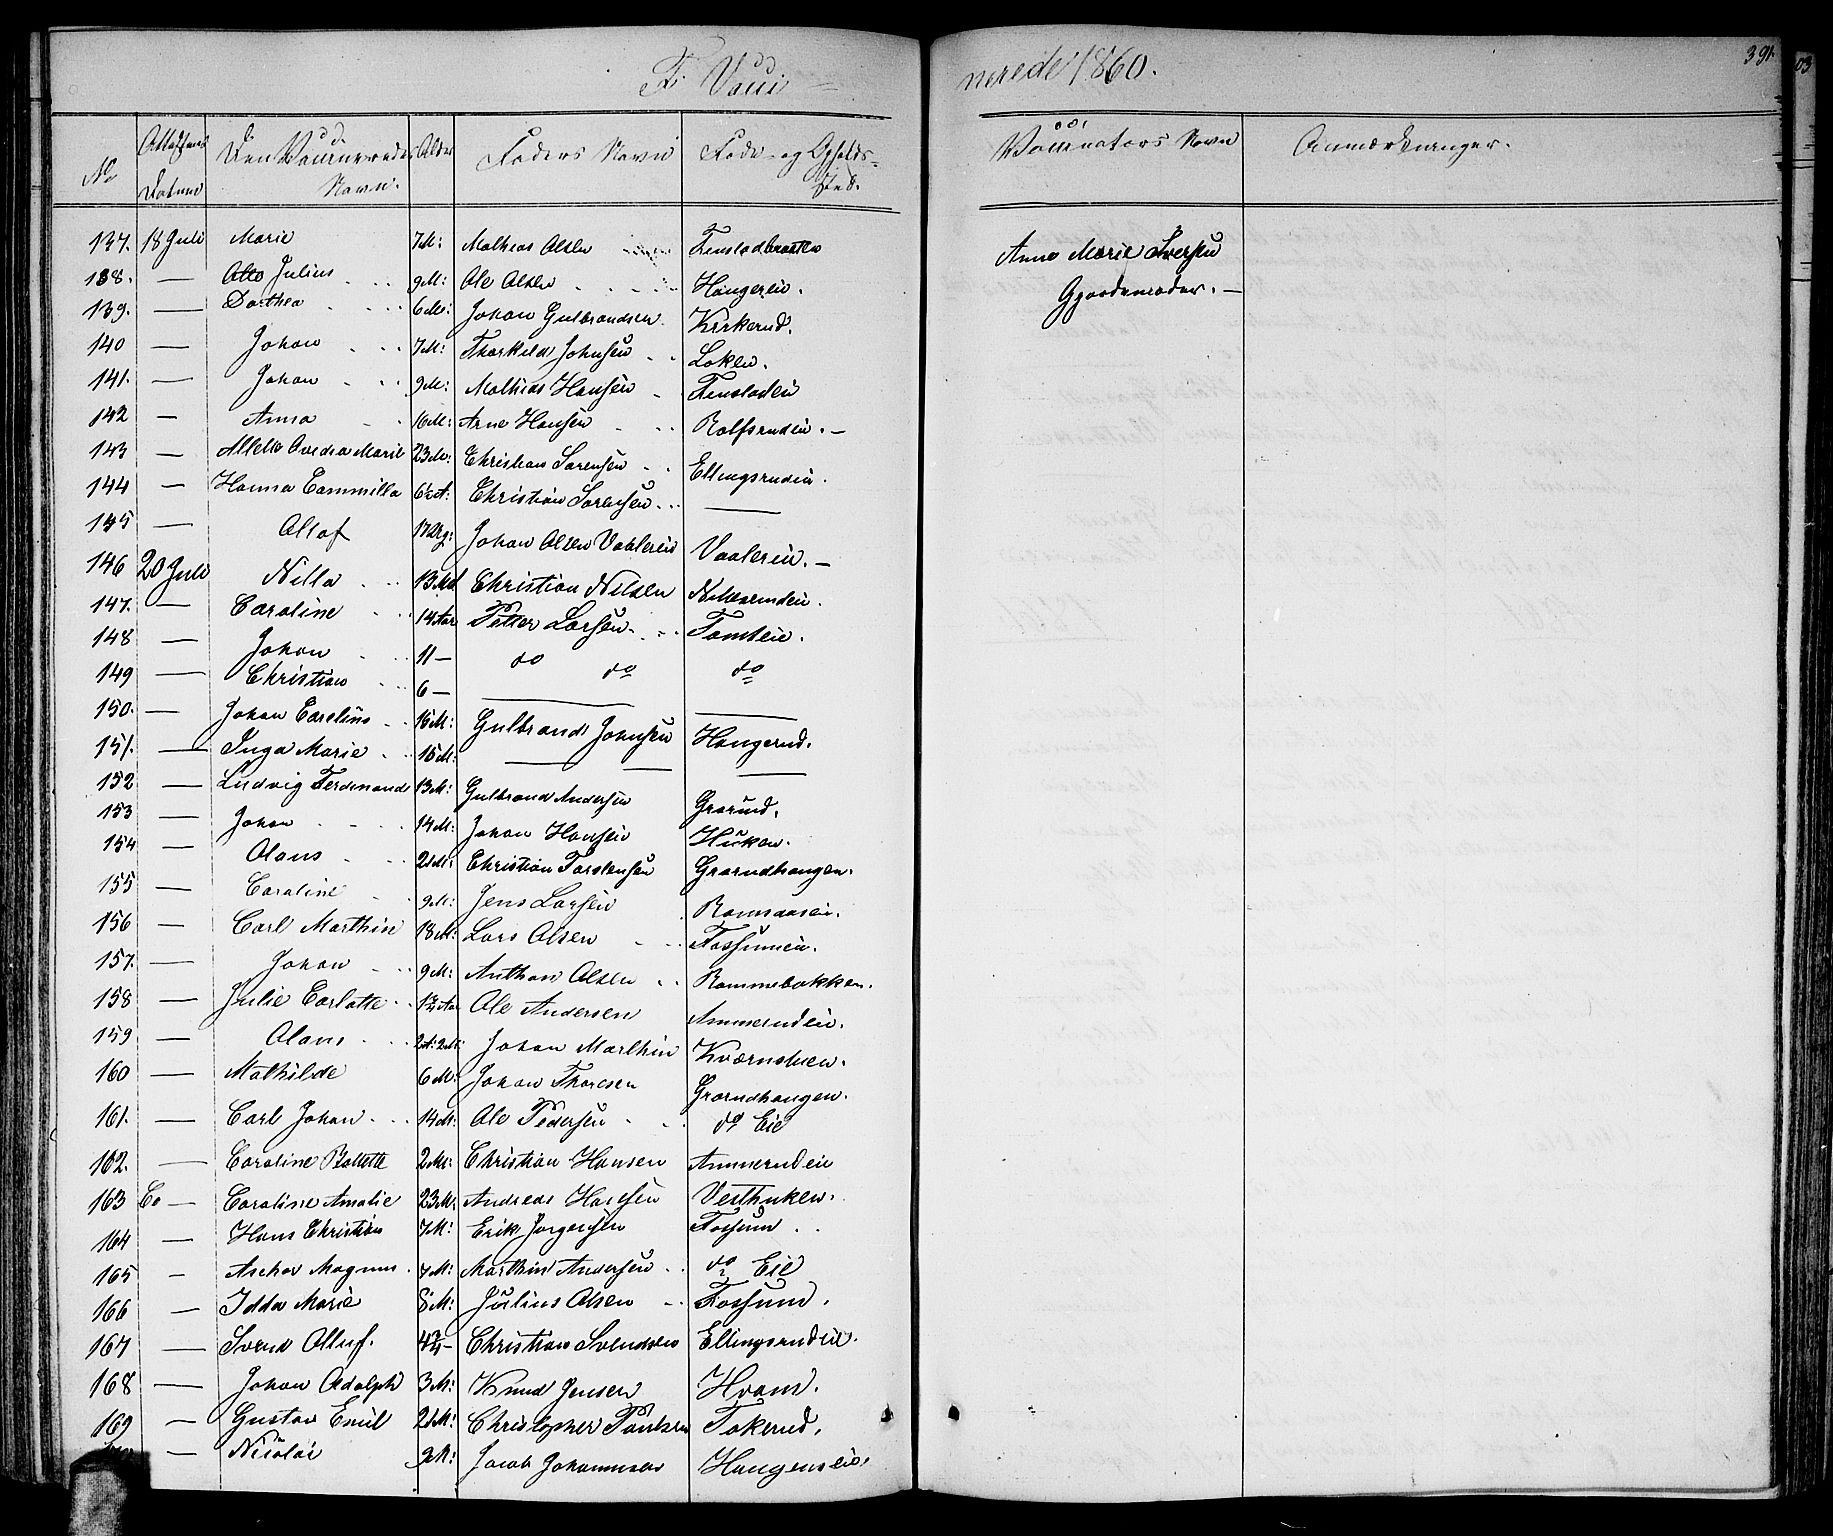 F. Vacci-
nerede 1860.
391
No
Attestens Datum
Den Vaccineredes Navn.
Alder
Faders Navn
Føde- og Opholds-Sted.
Vaccinators Navn
Anmærkninger.
137. 18 Juli Marie 7 M: Mathias Olsen Fenstadbraaten Anne Marie Iversen
138. — Otto Julius 9 M: Ole Olsen Haugerein. Gjordemoder. —
139. — Dorthea 6 M: Johan Gulbrandsen Kirkerud.
140 — Johan 7 M: Thorkild Johnsen Løken.
141. — Johan 9 M: Mathias Hansen Fenstadeie
142 — Anna 16 M: Arne Hansen Rolfsrudeie. —
143 — Allette Ovedia Marie 23 M: Christian Sørensen Ellingsrudeie.
144 — Hanna Cammilla 6½ A: Christian Sørensen —
145 — Ollaf Johan Olsen Vaalereie Vaalereie. —
146 20 Juli Nilla 13 Md Christian Nilsen
147. — Caroline 14 Aar Petter Larsen Tomteie.
148 — Johan 11 — do do do
149 — Christian 6 — — —
150. — Johan Carelius 16 M: Gulbrand Johnsen Haugerud.
151. — Inga Marie 15 M: — — —
152 — Ludvig Ferdinand 13 M: Gulbrand Andersen Grorud.
153 — Johan 14 M: Johan Hansen Huken.
154 — Olaus 21 M: Christian Torstensen Grorudhaugen.
155 — Caroline 9 M: Jens Larsen Romsaaseie.
156 — Carl Marthin 18 M: Lars Olsen Fossumeie.
157. — Johan 9 M: Anthon Olsen Rommebakken.
158 — Julie Carlotte Ole Andersen Ammerudeie.
159 — Olaus 2 A: 2 M: Johan Marthin Kværnstuen.
160 — Mathilde 6 M: Johan Thoresen Grorudhaugen.
161. — Carl Johan 14 M: Ole Pedersen do Eie
162. — Caroline Bollette 2 M: Christian Hansen Ammerudeie
163 — Caroline Amalie 23 M: Andreas Hansen Vesthuken.
164 — Hans Christian 7 M: Erik Jørgensen Fossum
165 — Aschor Magnus 7 M: Marthin Andersen do Eie
166 — Idda Marie 8 M: Julius Olsen Fossum.
167 — Svend Olluf. Christian Svendsen Ellingsrudeie.
168 — Johan Adolph 3 M: Knud Jensen Hvam.
169 — Gustav Emil 21 M: Christopher Paulsen Tokerud.
— Nicolai 9 M: Jacob Johannesen Haugenseie.